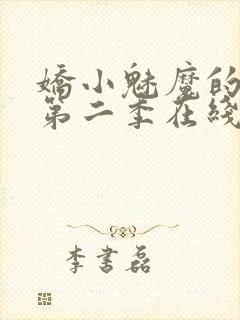 嬌小魅魔的
第二季在綫
李書磊